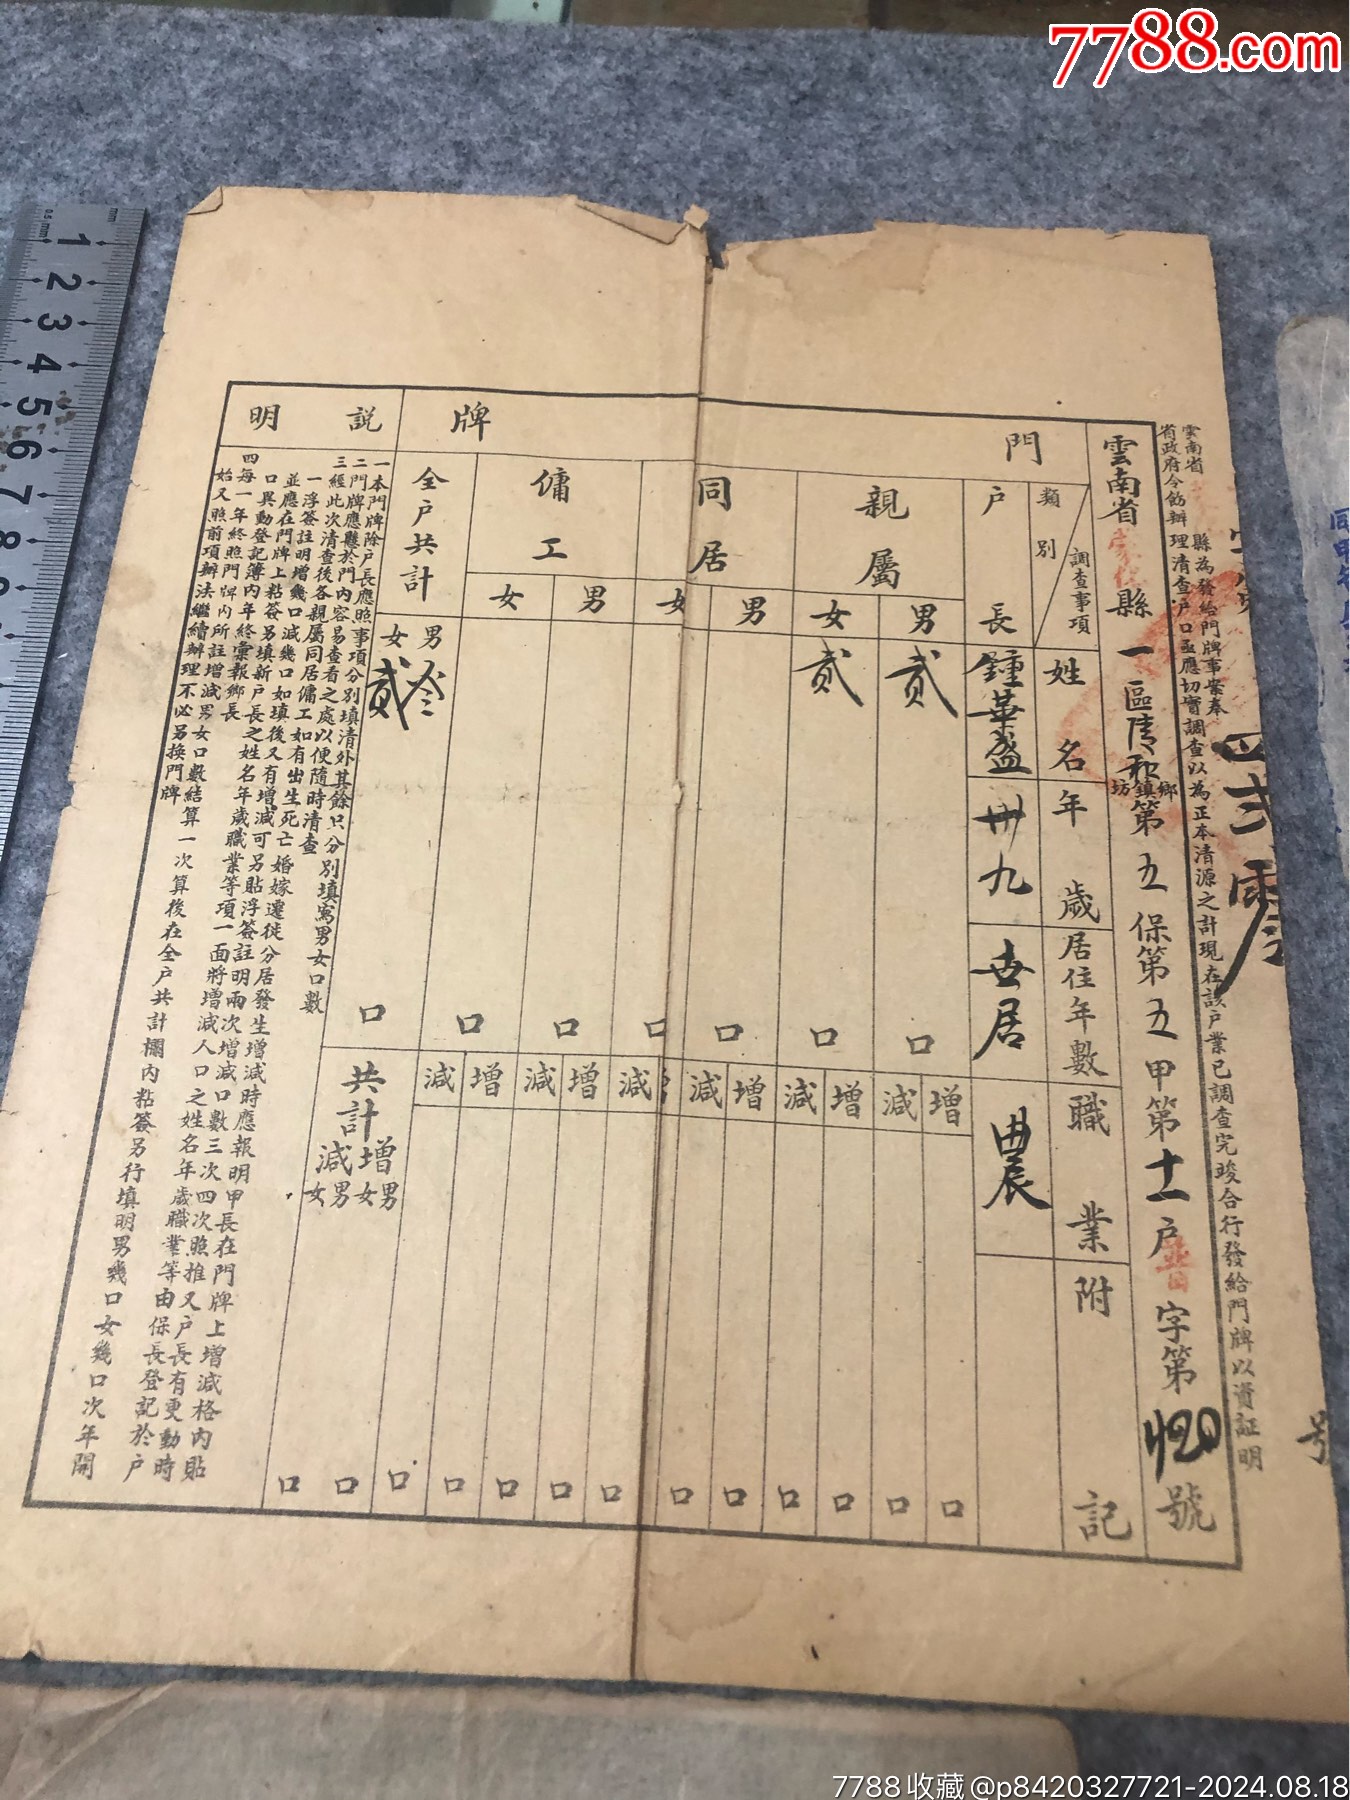 7788.com
雲南省
縣為發給門牌事案奉
省政府令飭辦理清查户口亟應切實調查以為正本清源之計現在該户業已調查完竣合行發給門牌以資証明
號
雲南省
縣一區清和鄉鎮坊第五保第五甲第十一户晋字第420號
門牌
類別
調查事項
姓名
年歲
居住年數
職業
附記
户長
鍾華盛
卅九
世居
農
親屬
男
貳
口
增
口
減
口
女
貳
口
增
口
減
口
同居
男
口
增
口
減
口
女
口
增
口
減
口
傭工
男
口
增
口
減
口
女
口
增
口
減
口
全户共計
男叁
女貳
口
共計
增男女
減男女
口
口
口
説明
一本門牌除户長應照事項分別填清外其餘只分別填寫男女口數
二門牌應懸於門內容易查看之處以便隨時清查
三經此次清查後各親屬同居傭工如有出生死亡婚嫁遷徙分居發生增減時應報明甲長在門牌上增減格內貼
一浮簽註明增幾口減幾口如填後又有增減可另貼浮簽註明兩次增減口數三次四次照推又户長有更動時
並應在門牌上粘簽另填新户長之姓名年歲職業等項一面將增減人口之姓名年歲職業等由保長登記於户
口異動登記簿內年終彙報鄉長
四每一年終照門牌內所註增減男女口數結算一次算後在全户共計欄內粘簽另行填明男幾口女幾口次年開
始又照前項辦法繼續辦理不必另換門牌
0.5mm
mm
1
2
3
4
5
6
7
8
9
7788收藏@p8420327721-2024.08.18